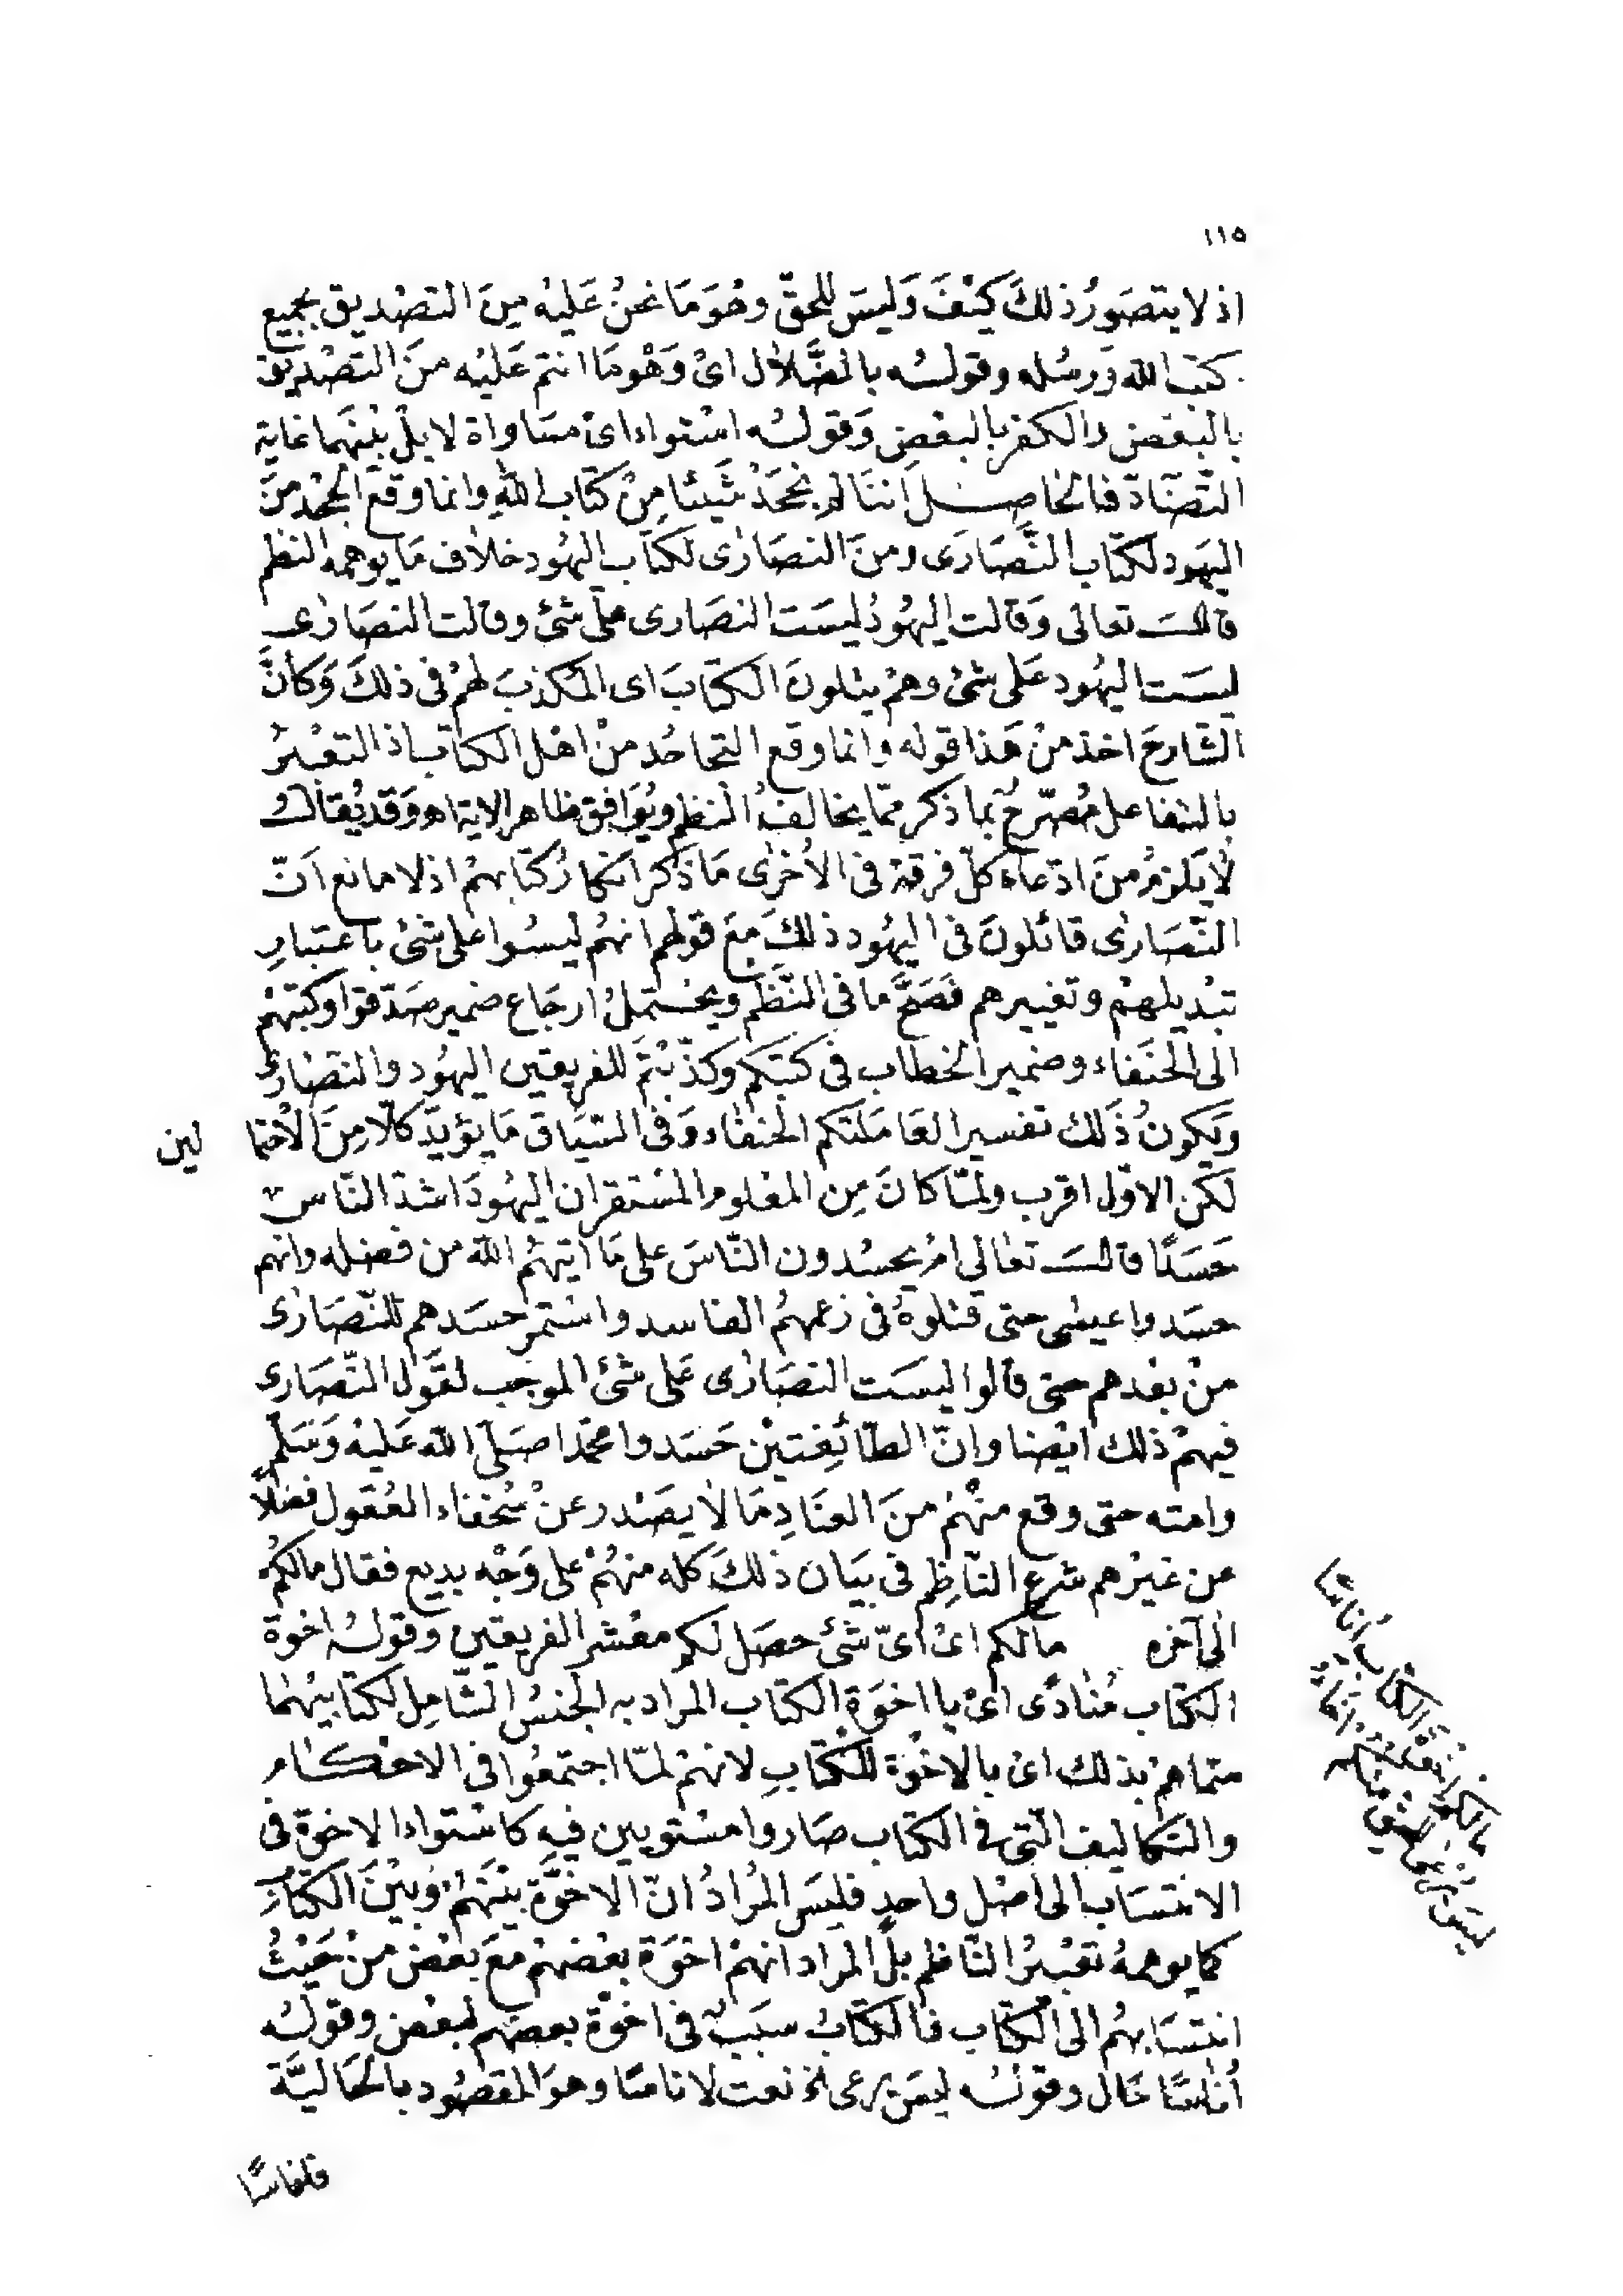 ١١٥
اذ لا يتصَورُ ذلكَ كيْفَ وَليسَ للحقّ وهُوَ مَا نحنُ عَليْه مِنَ التصْديق بجميع
كتب الله وَرسُله وقولـُه بالضَّلاَل اىْ وَهْو مَا انتم عَليْه منَ التصْديق
بالبعْض والكفر بالبعْض وَقولـُه استواء اىْ مسَاواة لا بلْ بيْنهَما غاية
التّضَادّ فالحاصـل اَننَا لم نجحَدْ شَيْئا مِنْ كتَاب اللهِ وانما وقعَ الجحْد منَ
اليَهود لكتَاب النَّصَارَى ومنَ النصَارٰى لكتَاب اليهُود خلاف مَا يوهمه النظم
قالـَ تعَالى وَقالت اليهُودُ ليسَت النصَارى على شئ وقالت النصَارٰى
ليسَت اليهُود عَلى شئ وهمْ يتلونَ الكتابَ اى المكذبَ لهمْ فى ذلكَ وَكأنَّ
الشارحَ اخذ منْ هَذا قوله وانما وقع التجاحُد منْ اهْل الكتاب اذ التعْبيْرُ
بالتفاعل مُصَرّحٌ بما ذكر ممّا يخالفُ النظم ويُوَافق ظاهر الاية اه وَقد يُقالـُ
لا يَلزمُ منَ ادّعاء كلّ فرقة فى الاُخْرٰى مَا ذكر انكارُ كتابهمْ اذ لا مانع اَنّ
النّصَارٰى قائلونَ فى اليهُود ذلكَ مَعَ قولهم انهمْ ليسُوا على شئ باعتبارِ
تبْديلهمْ وتغييرهم فَصَحَّ ما فى النّظم ويحتملُ ارجَاع ضمير صَدّقوا وكتبْهمْ
الى الحنَفاء وضمير الخطاب فى كتبَكم وكذّبْتمْ للفريقين اليهُود والنصَارٰى
وَيكونُ ذَلك تفسيرا لعَامَلتكم الحنفاء وَفى السّيَاق مَا يؤيّد كلًا مِنَ الاحْتما لين
لكن الاوّل اقرب ولمّا كانَ مِن المعْلوم المسْتقر ان اليهُودَ اشدّ النّاس
حَسَدًا قالـَ تعالى امْ يحسُدون النّاسَ على مَا اٰتيهُم الله من فضله وانهم
حسَدوا عيسٰى حتى قتلوهُ فى زعمهمُ الفاسد واسْتمر حسَدهم للنّصَارى
منْ بعْدهم حتى قالوا ليسَت النصَارٰى عَلى شئ الموجب لقَول النّصَارى
فيهمْ ذلك ايْضا وانّ الطّائِفتيْن حَسَدوا محمّدًا صَلّى الله عَليْه وَسَلم
وامته حتى وقع منْهمْ منَ العنَادِ مَا لا يصَدر عنْ سُخفاء العُقول فضلاً
عن غيْرهم شرع النّاظِم فى بيَان ذلكَ كله منهُمْ على وَجْه بديع فقال مالكمُ
الى آخره مالكم اىْ اىّ شئ حصَل لكم معْشر الفريقيْن وقولـُه اخوَة
الكتاب مُنادًى اىْ يا اخوَة الكتاب المراد به الجنسُ الشّامِل لكتابيْهما
سمّاهمْ بذلك اى بالاخْوَة للكتابِ لانهمْ لمّا اجتمعُوا فى الاحكام
والتكاليف التى فى الكتَاب صَاروا مسْتويين فيهِ كاسْتواء الاخوَة فى
الانتسَاب الى اصْلٍ واحدٍ فليسَ المُرَادُ انّ الاخوَّة بيْنَهمْ وَبيْنَ الكتابِ
كما يوهمهُ تعْبيْرُ النّاظم بل المراد انهمْ اخوَة بعْضهمْ مَعَ بعْض منْ حَيْثُ
انتسَابهمْ الى الكتَاب فالكتابُ سببٌ فى اخوّة بعضهم لبعْض وقولـُه
اُناسًا حَال وقولـُه ليسَ يرعى الخ نعت لاناسًا وهوَ المقصُود بالحَاليَّة
مالكم اخوة الكتاب اناسا
ليس يرعى للحق منكم اخاء
فلاناسًا